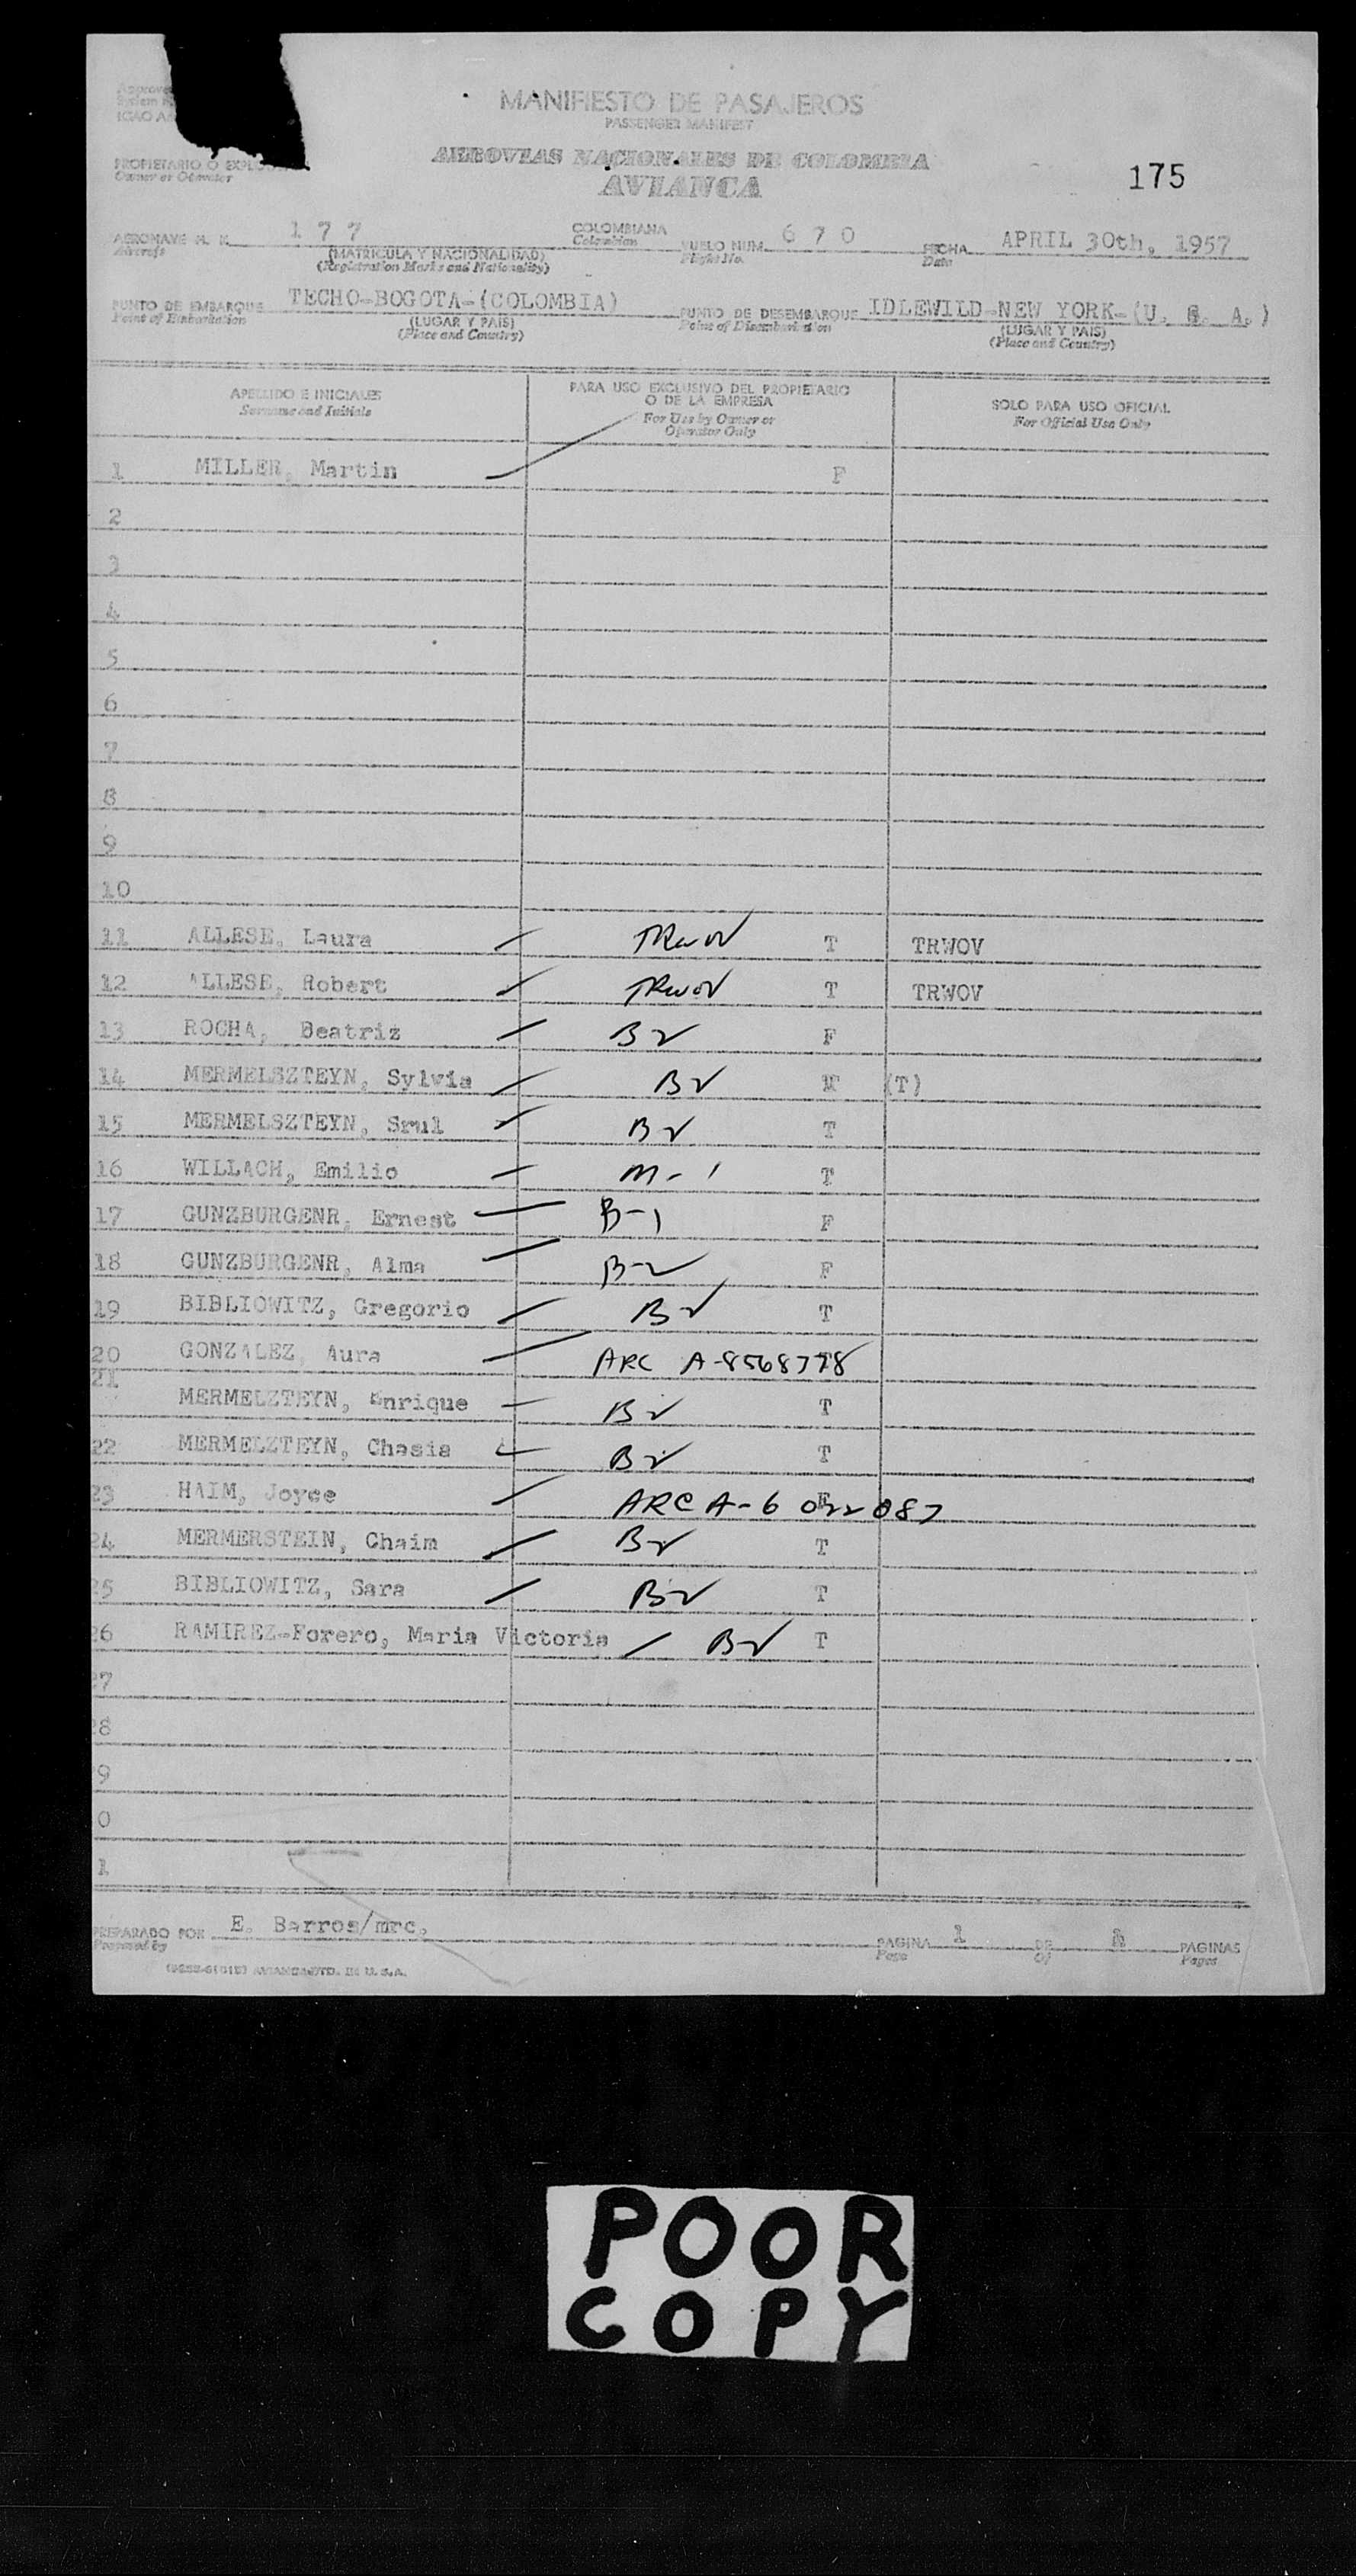 Approve
System
ICAO
MANIFIESTO DE PASAJEROS
PASSENGER MANIFEST
PROPIETARIO O
Owner or Operator
AEROVIAS NACIONALES DE COLOMBIA
AVIANCA
175
AERONAVE M. N. 177 COLOMBIANA VUELO NUM. 670 FECHA APRIL 30th, 1957
Aircraft (MATRICULA Y NACIONALIDAD) Colombian Flight No. Date
(Registration Marks and Nationality)
PUNTO DE EMBARQUE TECHO-BOGOTA-(COLOMBIA) PUNTO DE DESEMBARQUE IDLEWILD-NEW YORK-(U. S. A.)
Point of Embarkation (LUGAR Y PAIS) Point of Disembarkation (LUGAR Y PAIS)
(Place and Country) (Place and Country)
APELLIDO E INICIALES PARA USO EXCLUSIVO DEL PROPIETARIO O DE LA EMPRESA SOLO PARA USO OFICIAL
Surname and Initials For Use by Owner or Operator Only For Official Use Only
1 MILLER, Martin F
2
3
4
5
6
7
8
9
10
11 ALLESE, Laura TRWOV T TRWOV
12 ALLESE, Robert TRWOV T TRWOV
13 ROCHA, Beatriz B2 F
14 MERMELSZTEYN, Sylvia B2 (T)
15 MERMELSZTEYN, Smul B2 T
16 WILLACH, Emilio M-1 T
17 GUNZBURGENR, Ernest B-1 F
18 GUNZBURGENR, Alma B-2 F
19 BIBLIOWITZ, Gregorio B2 T
20 GONZALEZ, Aura ARC A-8568778
21
MERMELZTEYN, Enrique B2 T
22 MERMELZTEYN, Chasia B2 T
23 HAIM, Joyce ARC A-6 022 087 F
24 MERMERSTEIN, Chaim B2 T
25 BIBLIOWITZ, Sara B2 T
26 RAMIREZ-Forero, Maria Victoria B2 T
27
28
9
0
1
PREPARADO POR E. Barros/mrc. PAGINA 1 DE PAGINAS
Prepared by Page Of Pages
AVIANCA IN U. S. A.
POOR
COPY